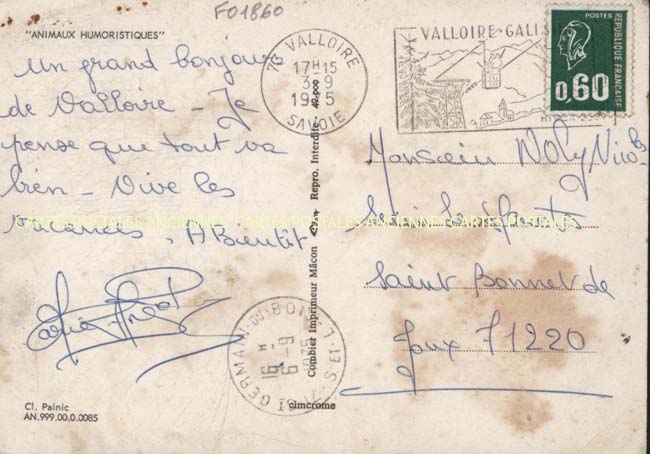 F01860
"ANIMAUX HUMORISTIQUES"
Un grand bonjour
de Valloire - Je
pense que tout va
bien - Vive les
vacances, A Bientôt
73 VALLOIRE
17H15
3-9
1975
SAVOIE
VALLOIRE-GALI
POSTES
REPUBLIQUE FRANÇAISE
0,60
Monsieur
Saint Bonnet de
Joux 71220
CARTES POSTALES ANCIENNES CARTES POSTALES ANCIENNES CARTES POSTALES
Combier Imprimeur Mâcon
Repro. Interdite
cimcrome
ST GERMAIN-DU-BOIS
71 S. ET L.
16H
6-9
1975
Cl. Painic
AN.999.00.0.0085